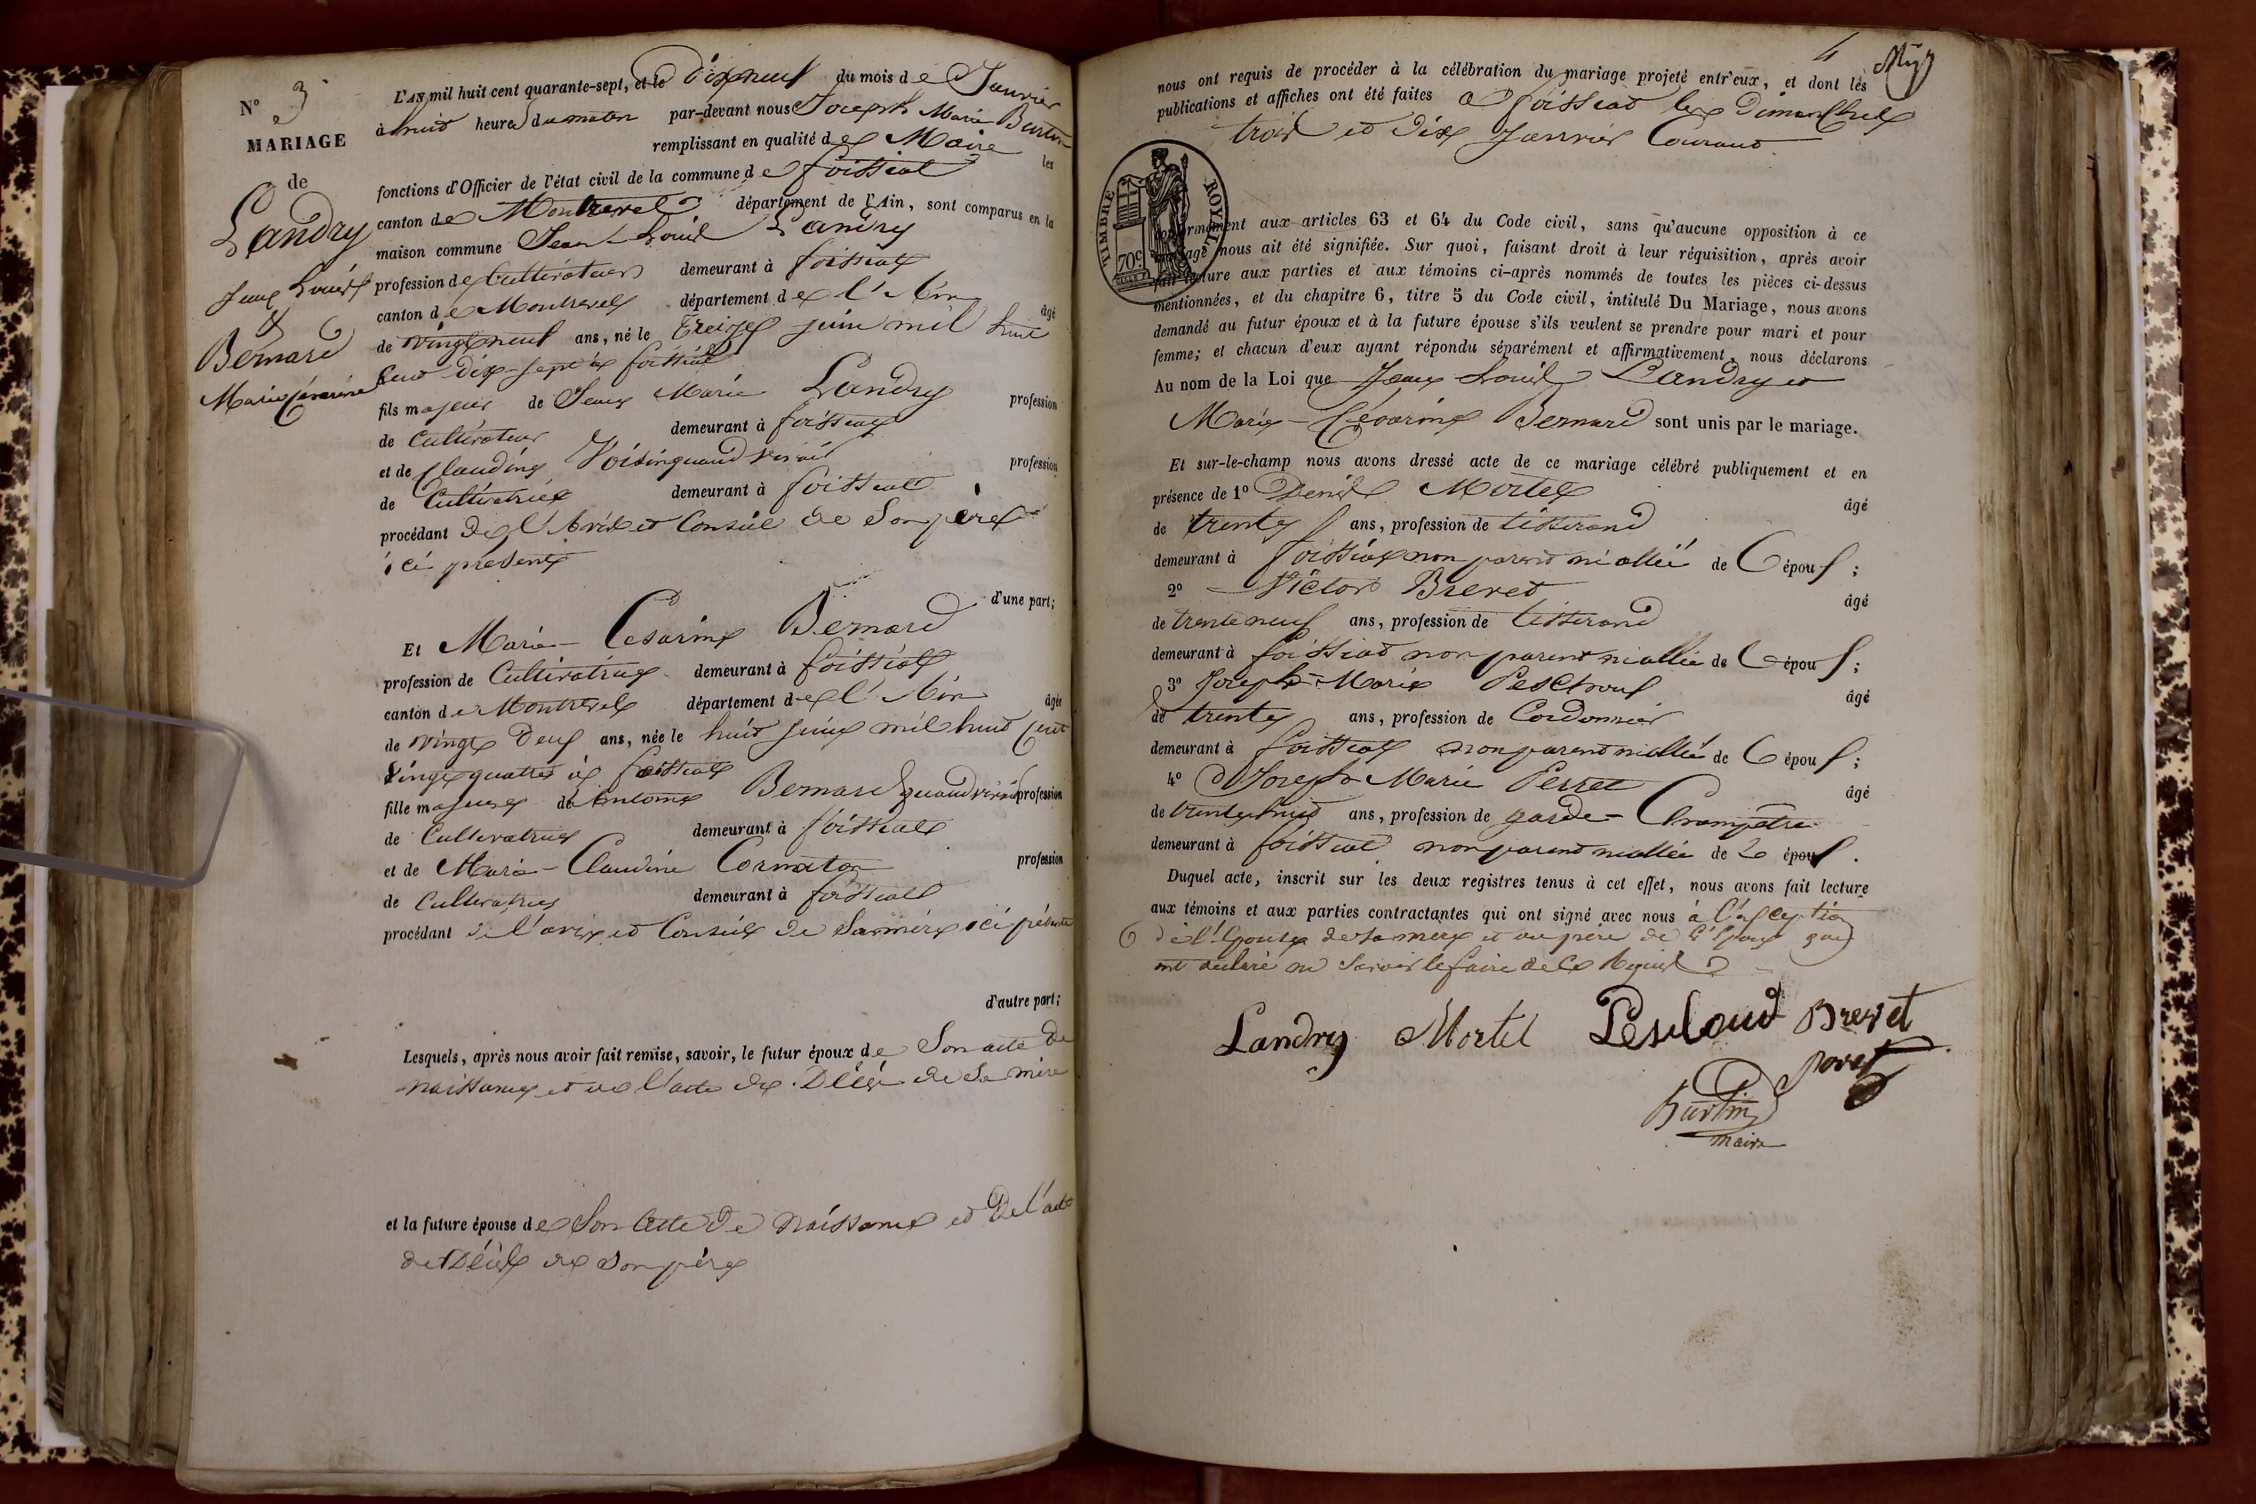 N° 3
MARIAGE
de
Landry
Jean Louis
&
Bernard
Marie Césarine
L'AN mil huit cent quarante-sept, et le dix neuf du mois de Janvier
à huit heures du matin par-devant nous Joseph Marie Burtin
remplissant en qualité de Maire les
fonctions d'Officier de l'état civil de la commune de foissiat
canton de Montrevel département de l'Ain, sont comparus en la
maison commune Jean Louis Landry
profession de Cultivateur demeurant à foissiat
canton de Montrevel département de l'Ain âgé
de vingt neuf ans, né le treize juin mil huit
cent dix-sept à foissiat
fils majeur de Jean Marie Landry profession
de cultivateur demeurant à foissiat
et de Claudine Voisin quand vivait profession
de Cultivatrice demeurant à foissiat
procédant de l'avis et Conseil de Son père
ici présent
d'une part;
Et Marie-Césarine Bernard
profession de Cultivatrice demeurant à foissiat
canton de Montrevel département de l'Ain âgée
de vingt deux ans, née le huit juin mil huit Cent
vingt quatre à foissiat
fille majeure de Antoine Bernard quand vivait profession
de Cultivatrice demeurant à foissiat
et de Marie-Claudine Cormaton profession
de Cultivatrice demeurant à foissiat
procédant de l'avis et Conseil de Sa mère ici présente
d'autre part;
Lesquels, après nous avoir fait remise, savoir, le futur époux de Son acte de
naissance et de l'acte de Décès de Sa mère
et la future épouse de Son acte de naissance et De l'acte
de Décès de Son père
4
nous ont requis de procéder à la célébration du mariage projeté entr'eux, et dont les
publications et affiches ont été faites à foissiat les Dimanches
trois et dix Janvier Courant
TIMBRE ROYAL
70c
conformément aux articles 63 et 64 du Code civil, sans qu'aucune opposition à ce
mariage nous ait été signifiée. Sur quoi, faisant droit à leur réquisition, après avoir
fait lecture aux parties et aux témoins ci-après nommés de toutes les pièces ci-dessus
mentionnées, et du chapitre 6, titre 5 du Code civil, intitulé Du Mariage, nous avons
demandé au futur époux et à la future épouse s'ils veulent se prendre pour mari et pour
femme; et chacun d'eux ayant répondu séparément et affirmativement, nous déclarons
Au nom de la Loi que Jean Louis Landry et
Marie-Césarine Bernard sont unis par le mariage.
Et sur-le-champ nous avons dressé acte de ce mariage célébré publiquement et en
présence de 1° Denis Mortel âgé
de trente ans, profession de tisserand
demeurant à foissiat non parent ni allié de Cépoux;
2° Victor Brevet âgé
de trente neuf ans, profession de tisserand
demeurant à foissiat non parent ni allié de Cépoux;
3° Joseph-Marie Pescloux âgé
de trente ans, profession de Cordonnier
demeurant à foissiat non parent ni allié de Cépoux;
4° Joseph Marie Perret âgé
de trente huit ans, profession de garde-Champêtre
demeurant à foissiat non parent ni allié de Cépoux.
Duquel acte, inscrit sur les deux registres tenus à cet effet, nous avons fait lecture
aux témoins et aux parties contractantes qui ont signé avec nous à l'exception
de l'épouse de sa mère et du père de l'époux qui
ont déclaré ne Savoir le faire de Ce Requis
Landry Mortel Pescloud Brevet
Burtin
maire